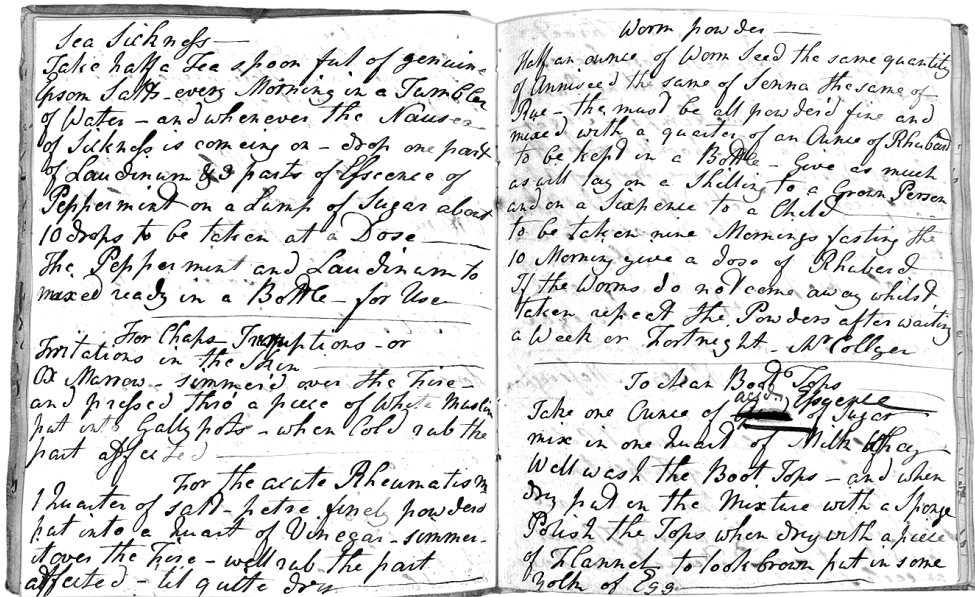 Sea Sickness —
Take half a Tea spoon ful of genuine
Epsom Salts - every Morning in a Tumbler
of Water - and whenever the Nausea
of Sickness is comeing on - drop one part
of Laudinum & 3 parts of Essence of
Peppermint on a Lump of Sugar about
10 drops to be taken at a Dose —
The Peppermint and Laudinum to
mixed ready in a Bottle - for Use
For Chaps Irruptions - or
Irritations in the Skin
Ox Marrow - simmer'd over the Fire -
and pressed thro' a piece of White Muslin
put into Gallypots - when Cold rub the
part affected
For the acute Rheumatism
1 Quarter of salt-petre finely powderd
put into a Quart of Vinegar - simmer-
it over the Fire - well rub the part
affected - til quite dry
Worm powder —
Half an ounce of Worm Seed the same quantity
of Anniseed the same of Senna the same of
Rue - the must be all powder'd fine and
mixed with a quarter of an Ounce of Rhubard
to be kept in a Bottle - Give as much
as will lay on a Shilling to a Grown Person
and on a Sixpence to a Child
to be taken nine Mornings fasting the
10 Morning give a dose of Rhubard
If the Worms do not come away whilst
taken repeat the Powders after waiting
a Week or Fortnight - Mrs Collyer
To clean Boot Tops
Take one Ounce of acid of Sugar
mix in one Quart of Milk
Well wash the Boot Tops - and when
dry put on the Mixture with a Sponge
Polish the Tops when dry with a piece
of Flannel to look brown put in some
Yolk of Egg